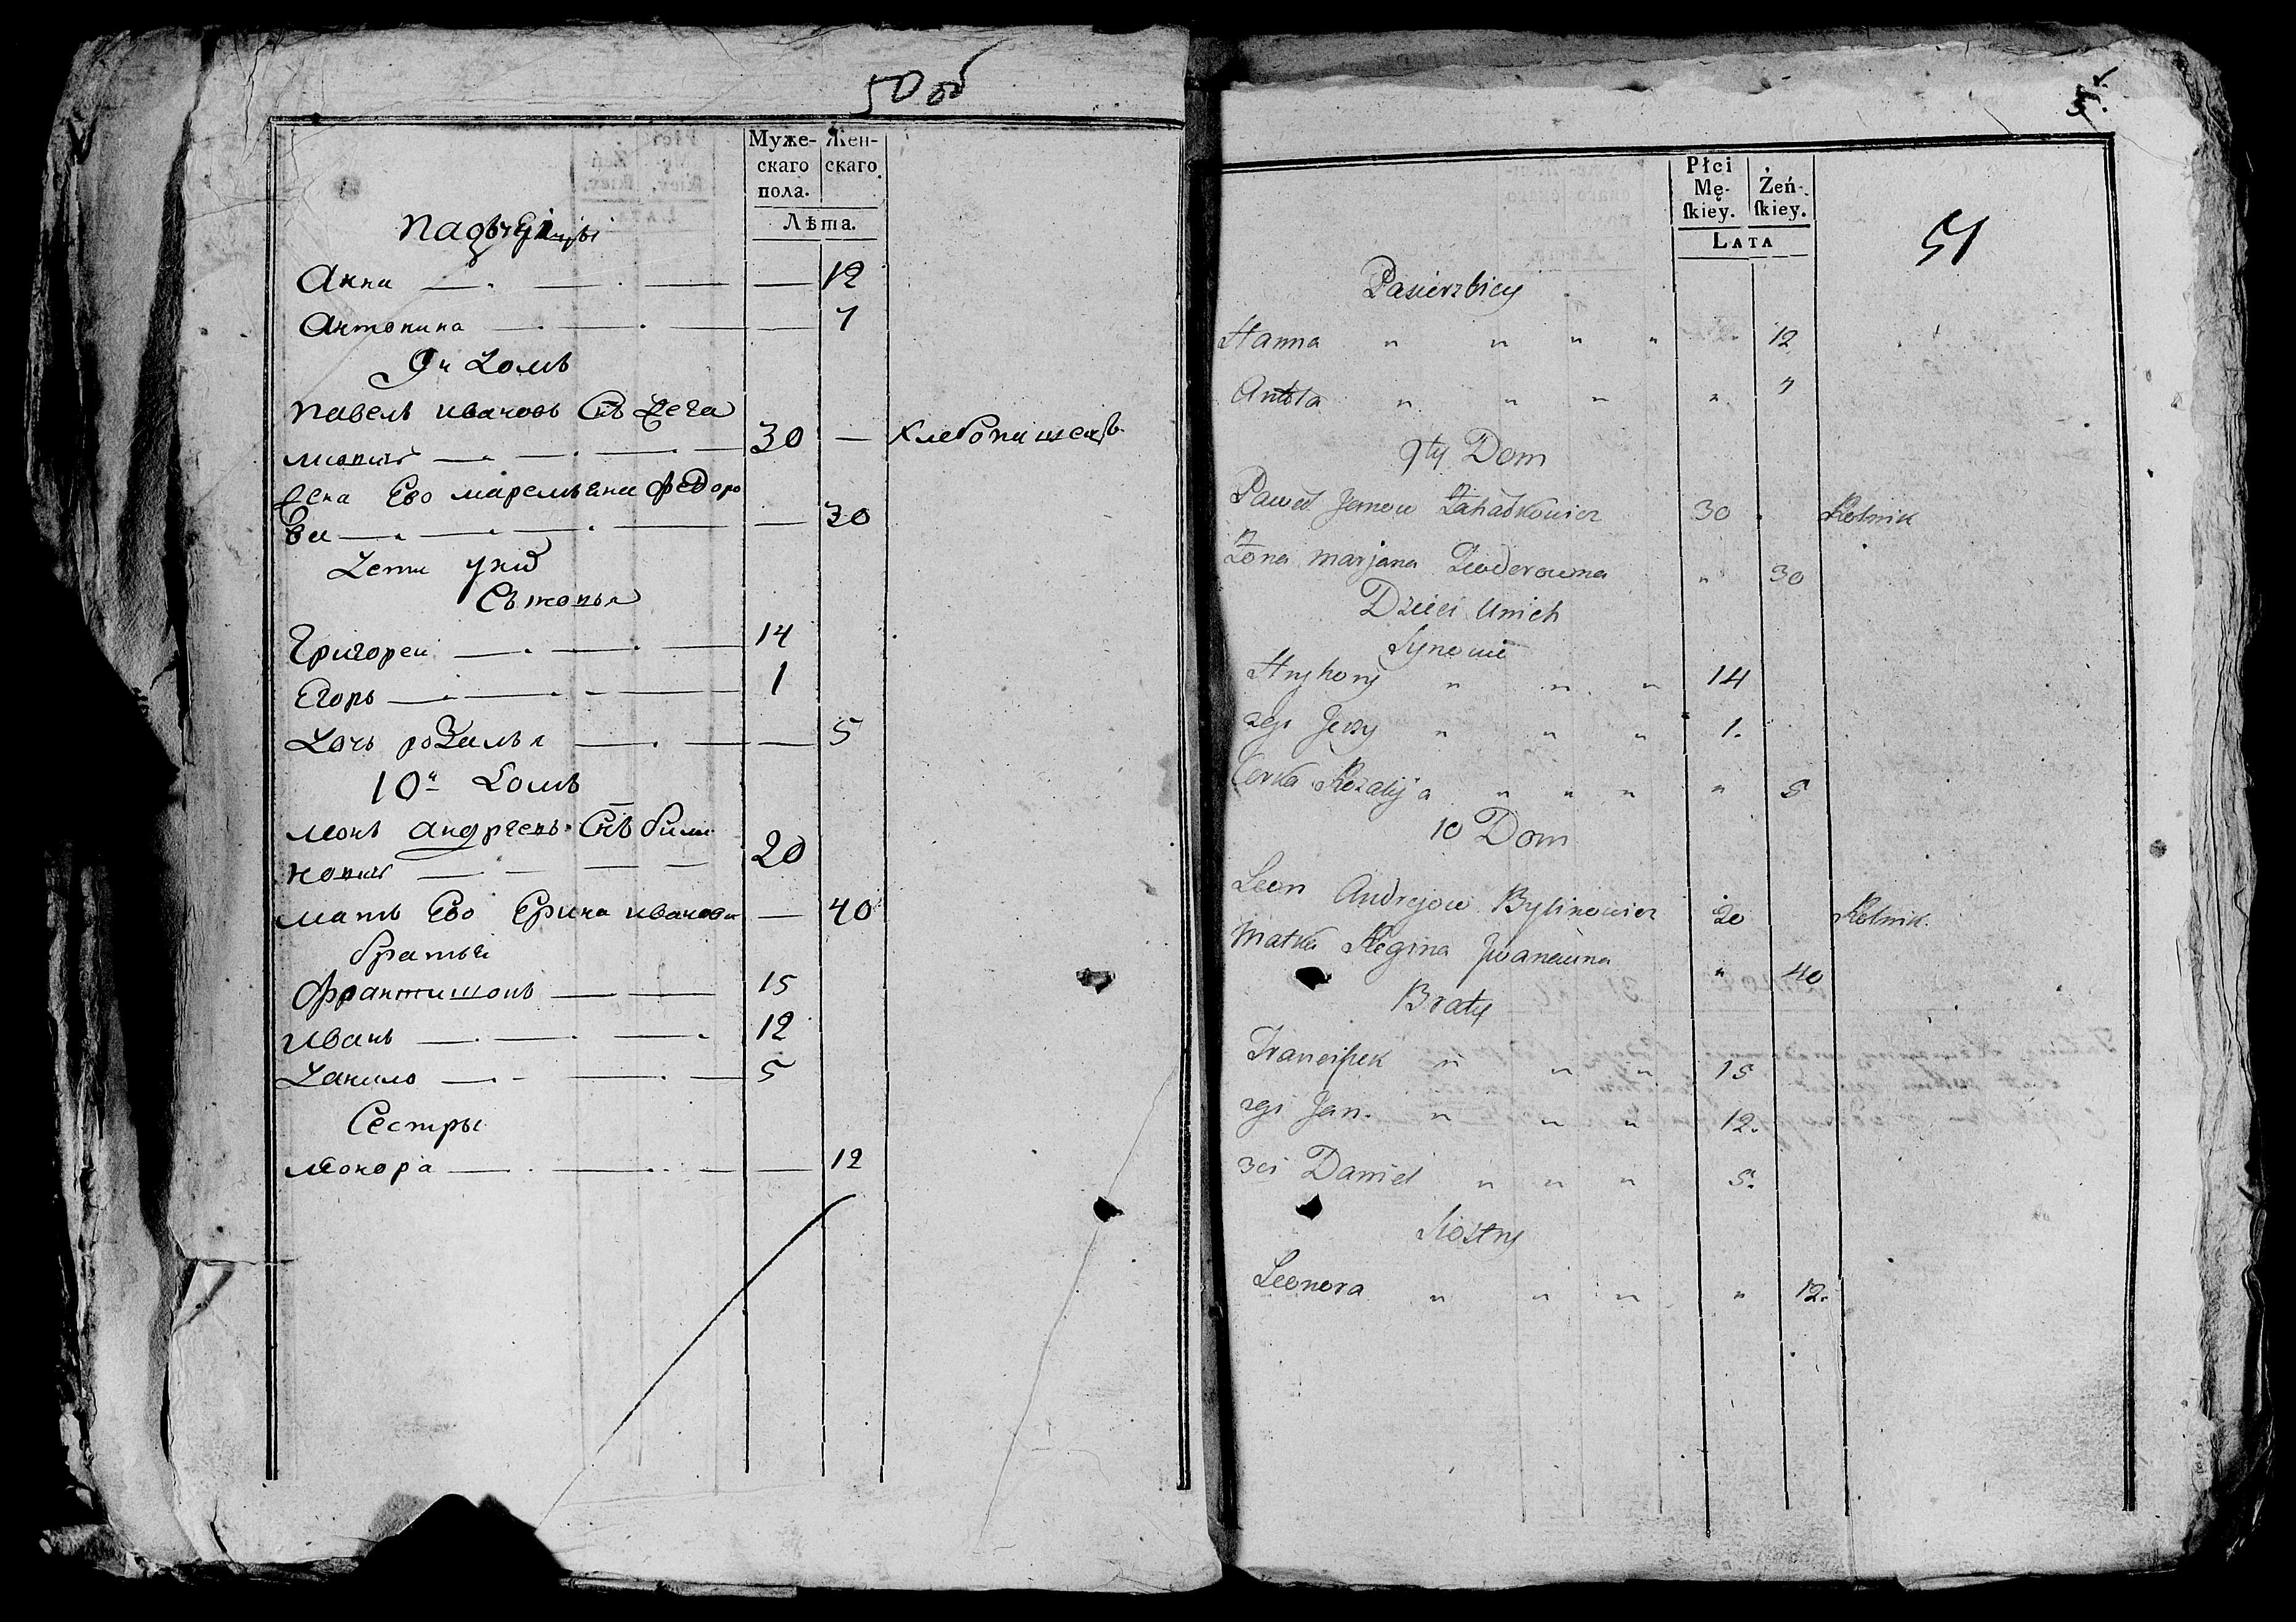 50 об
Муже-
скаго
пола.
Жен-
скаго.
Лѣта.
Падчерицы
Анна 12
Антонина 7
9й Домъ
Павелъ Ивановъ Снъ
30 — Хлебопашецъ
Жена Его Маремьяна Федоро
ва 30
Дети у них
Сыновья
Григорей 14
Егоръ 1
Дочь Розалья 5
10й Домъ
Леонъ Андреевъ Снъ Били
новичъ 20
Мать Его Ерина Иванова — 40
братья
Франтишокъ 15
Иванъ 12
Данило 5
Сестры
Леонора 12
51
Płci
Mę-
ſkiey.
Żeń-
ſkiey.
LATA
51
Pasierzbicy
Hanna " " " " 12
Antola " " " " 7
9ty Dom
Paweł Janow 30 Rolnik
Żona Marjana Teoderowna " 30
Dzieci Unich
Synowie
Hryhory " " " 14
2gi Jerzy " " " 1.
Corka Rozalija " " " " 5
10 Dom
Leon Andrejow Bylinowicz 20 Rolnik
Matka Regina Iwanauna " 40
Braty
Franciszek " " " 15
2gi Jan. " " " 12.
3ci Daniel " " " 5.
Siostry
Leonora " " " " 12.